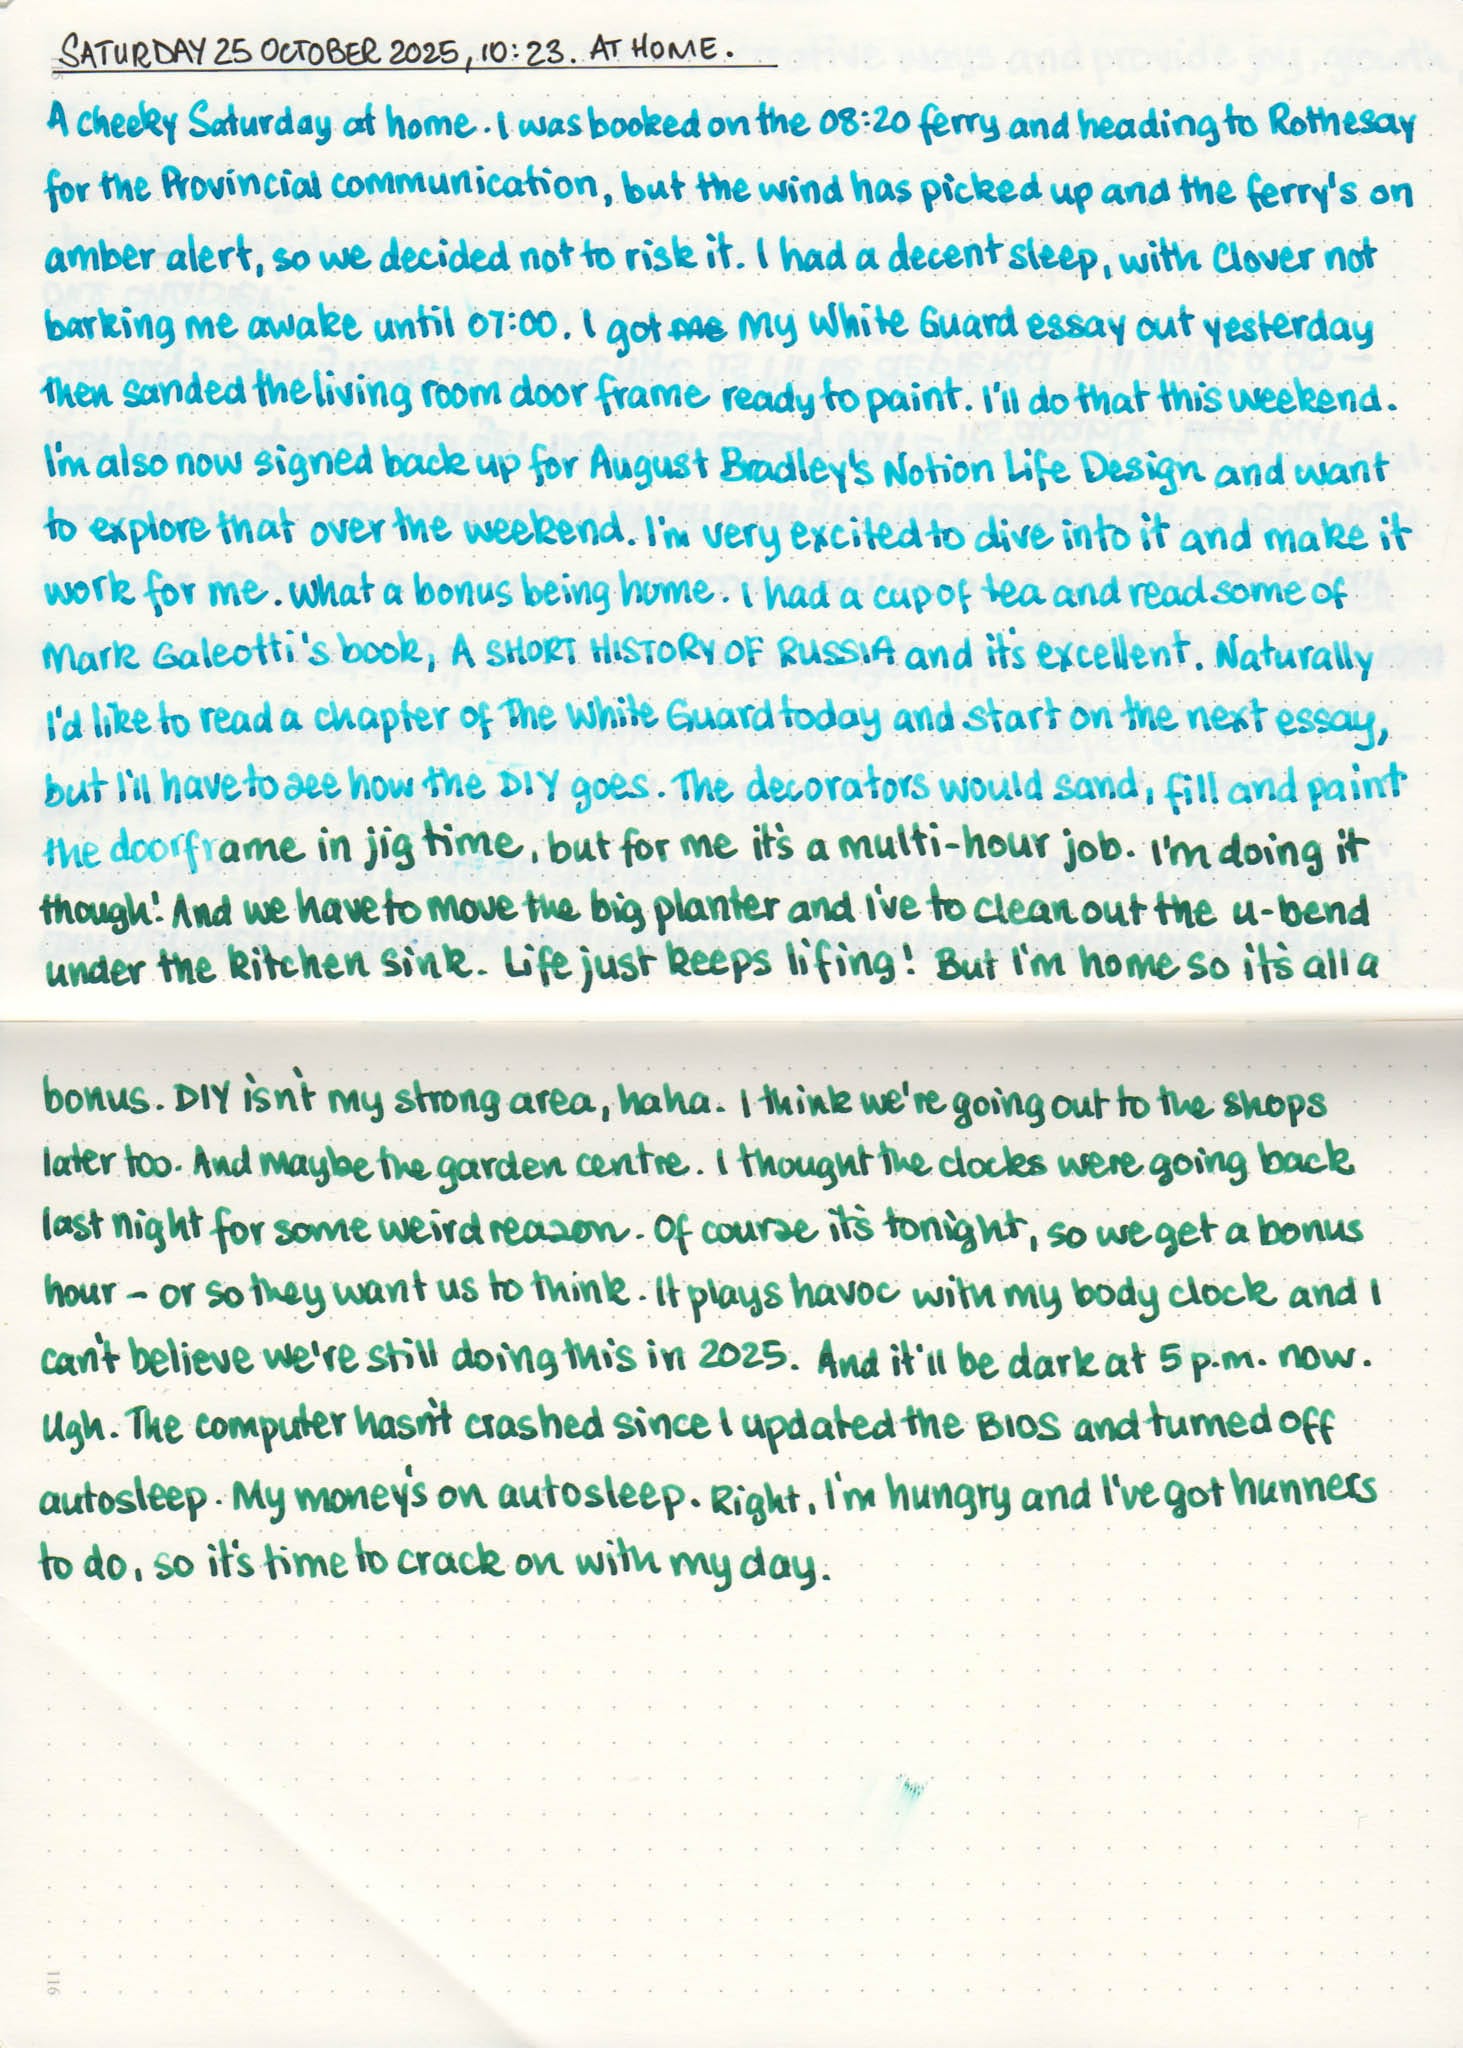 SATURDAY 25 OCTOBER 2025, 10:23. AT HOME.
A cheeky Saturday at home. I was booked on the 08:20 ferry and heading to Rothesay
for the Provincial communication, but the wind has picked up and the ferry's on
amber alert, so we decided not to risk it. I had a decent sleep, with Clover not
barking me awake until 07:00. I got me my White Guard essay out yesterday
then sanded the living room door frame ready to paint. I'll do that this weekend.
I'm also now signed back up for August Bradley's Notion Life Design and want
to explore that over the weekend. I'm very excited to dive into it and make it
work for me. What a bonus being home. I had a cup of tea and read some of
Mark Galeotti's book, A SHORT HISTORY OF RUSSIA and it's excellent. Naturally
I'd like to read a chapter of The White Guard today and start on the next essay,
but I'll have to see how the DIY goes. The decorators would sand, fill and paint
the doorframe in jig time, but for me it's a multi-hour job. I'm doing it
though! And we have to move the big planter and I've to clean out the u-bend
under the kitchen sink. Life just keeps lifing! But I'm home so it's all a
bonus. DIY isn't my strong area, haha. I think we're going out to the shops
later too. And maybe the garden centre. I thought the clocks were going back
last night for some weird reason. Of course it's tonight, so we get a bonus
hour – or so they want us to think. It plays havoc with my body clock and I
can't believe we're still doing this in 2025. And it'll be dark at 5 p.m. now.
Ugh. The computer hasn't crashed since I updated the BIOS and turned off
autosleep. My money's on autosleep. Right, I'm hungry and I've got hunners
to do, so it's time to crack on with my day.
116